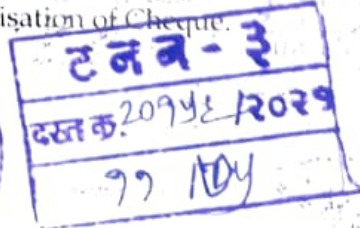 isation of Cheque.
ट न न - ३
दस्त क्र. २०१५६ /२०२१
११ /